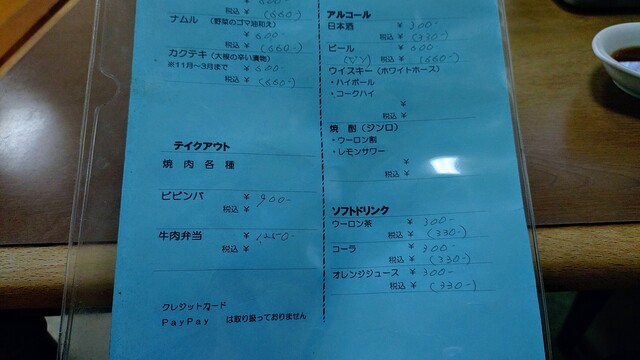 ¥ 600-
税込 ¥ (660-)
ナムル (野菜のゴマ油和え)
¥ 600-
税込 ¥ (660-)
カクテキ (大根の辛い漬物)
※11月～3月まで ¥ 600-
税込 ¥ (660-)
テイクアウト
焼肉各種
ビビンバ ¥ 900-
税込 ¥
牛肉弁当 ¥ 1,250-
税込 ¥
クレジットカード
PayPay は取り扱っておりません
アルコール
日本酒 ¥ 300-
税込 ¥ (330-)
ビール ¥ 600-
(ビン) 税込 ¥ (660-)
ウイスキー (ホワイトホース)
・ハイボール
・コークハイ
¥
税込 ¥
焼酎 (ジンロ)
・ウーロン割
・レモンサワー
¥
税込 ¥
ソフトドリンク
ウーロン茶 ¥ 300-
税込 ¥ (330-)
コーラ ¥ 300-
税込 ¥ (330-)
オレンジジュース ¥ 300-
税込 ¥ (330-)